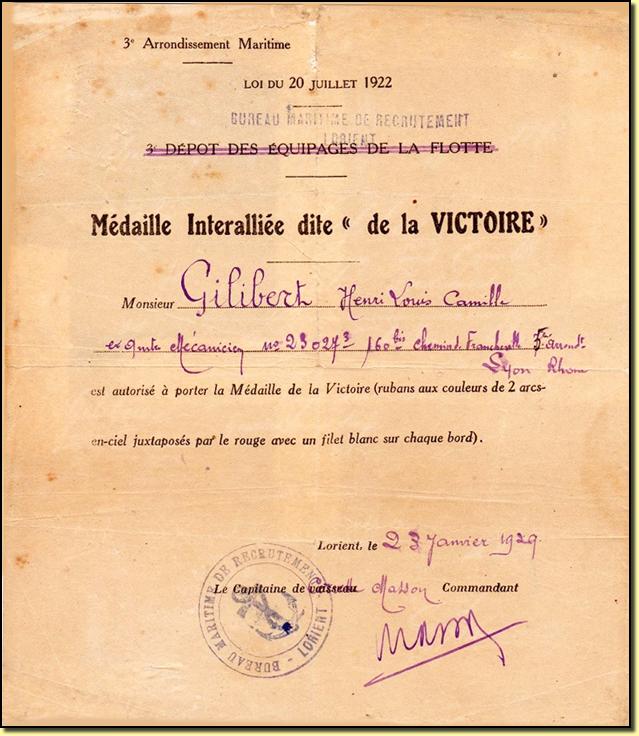 3e Arrondissement Maritime
LOI DU 20 JUILLET 1922
BUREAU MARITIME DE RECRUTEMENT
LORIENT
3e DÉPOT DES ÉQUIPAGES DE LA FLOTTE
Médaille Interalliée dite « de la VICTOIRE »
Monsieur Gilibert Henri Louis Camille
ex Qmtre Mécanicien no 23027-3 160 bis chemin d. Francheville 5e Arrondt
Lyon Rhone
est autorisé à porter la Médaille de la Victoire (rubans aux couleurs de 2 arcs-
en-ciel juxtaposés par le rouge avec un filet blanc sur chaque bord).
Lorient, le 23 Janvier 1929
Le Capitaine de vaisseau Masson Commandant
Masson
BUREAU MARITIME DE RECRUTEMENT - LORIENT -